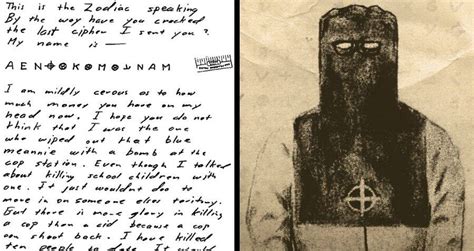 This is the Zodiac speaking
By the way have you cracked
the last cipher I sent you?
My name is —
A E N ⌖ Ꮻ K Ꮻ M Ꮻ ⅃ N A M
I am mildly cerous as to how
much money you have on my
head now. I hope you do not
think that I was the one
who wiped out that blue
meannie with a bomb at the
cop station. Even though I talked
about killing school children with
one. It just wouldnt doo to
move in on someone elses teritory.
But there is more glory in killing
a cop than a cid because a cop
can shoot back. I have killed
ten people to date. It would